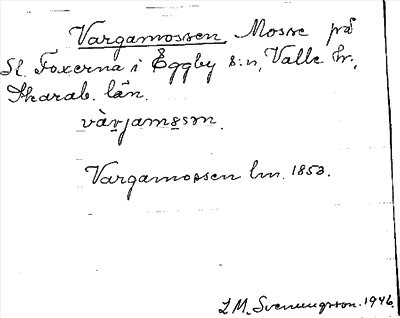 Vargamossen Mosse på
St. Foxerna i Eggby s:n, Valle hr.,
Skarab. län.
vàrjamsm.
Vargamossen lm. 1853.
L.M. Svenungsson. 1946.